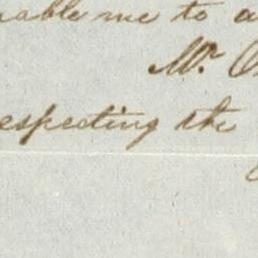 nable me to a
Mr.
especting the